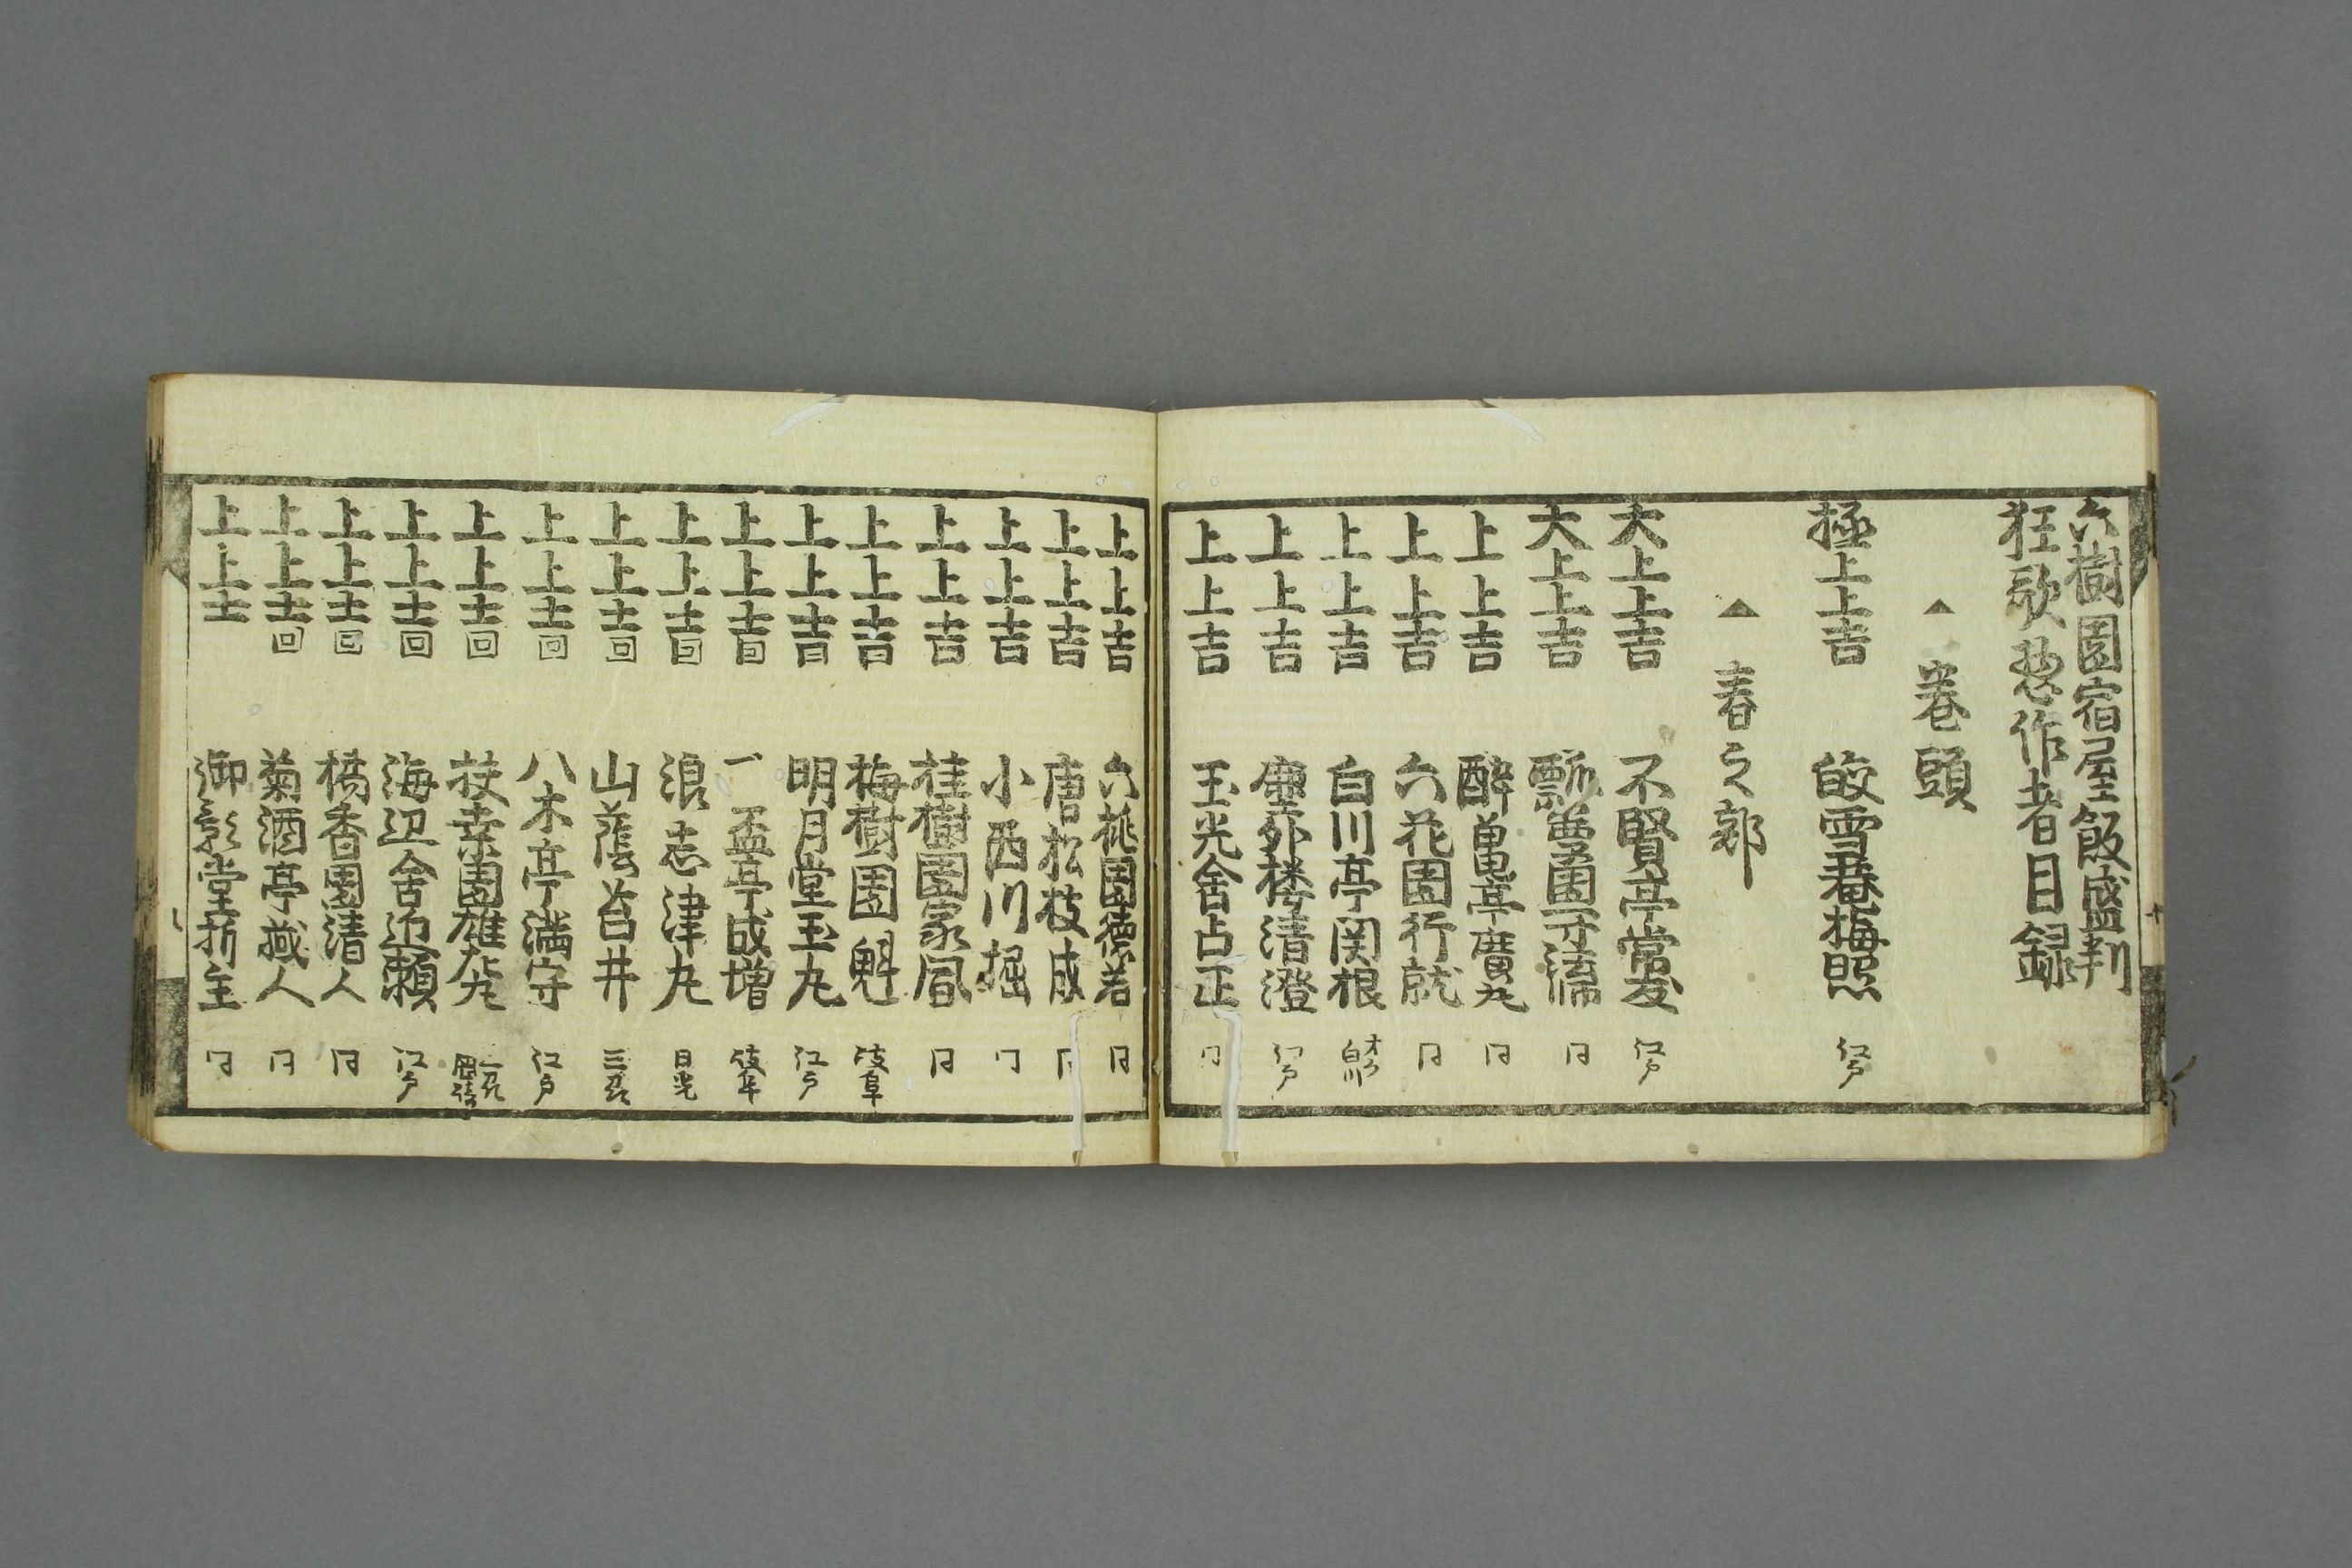 六樹園宿屋飯盛判
狂歌惣作者目録
▲ 巻頭
極上上吉 皎雪菴梅照 江戸
▲ 春之部
大上上吉 不賢亭常友 江戸
大上上吉 瓢 園 同
上上吉 酔亀亭廣丸 同
上上吉 六花園行就 同
上上吉 白川亭関根 白川
上上吉 塵外楼清澄 江戸
上上吉 玉光舎占正 同
上上吉 六桃園徳若 同
上上吉 唐松枝成 同
上上吉 小西川掘 同
上上吉 桂樹園家風 同
上上吉 梅樹園魁 岐阜
上上吉 明月堂玉丸 江戸
上上吉 一盃亭成増 岐阜
上上吉 浪志津丸 日光
上上士回 山蔭苔井
上上士回 八木亭満守 江戸
上上士回 園雄 岡崎
上上士回 海辺舎近頼 江戸
上上士回 橘香園清人 同
上上士回 菊酒亭 人 同
上上士 御影堂折主 同